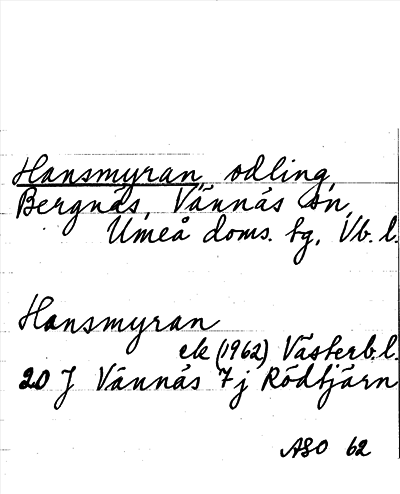 Hansmyran, odling,
Bergnäs, Vännäs sn,
Umeå doms. fg, Vb. l.
Hansmyran
ek (1962) Västerb.l.
20 J Vännäs 7 j Rödtjärn
ASO 62